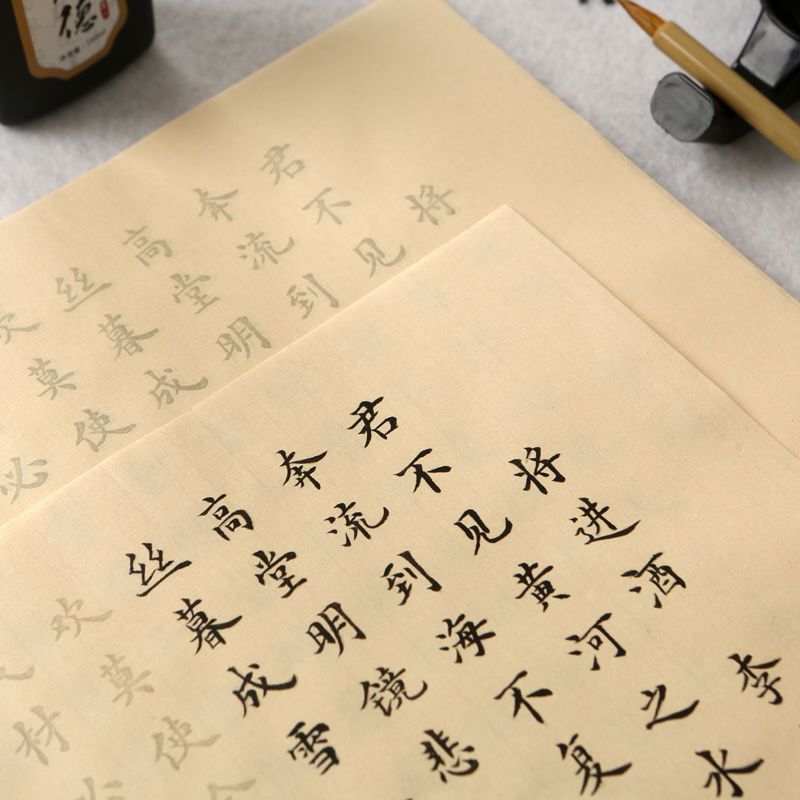 德
将
君不见
奔流到
高堂明
丝暮成
欢莫使
必
将进酒 李
君不见黄河之水
奔流到海不复
高堂明镜悲
丝暮成雪
欢莫使
材必